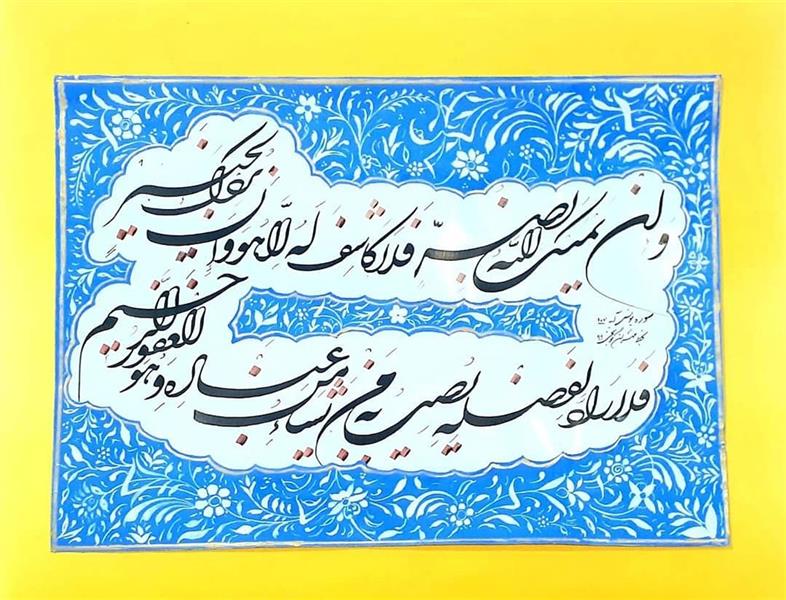 وان یمسک الله بضر فلا کاشف له الا هو وان یردک بخیر
فلا راد لفضله یصیب به من یشاء من عباده وهو الغفور الرحیم
سوره یونس آیه